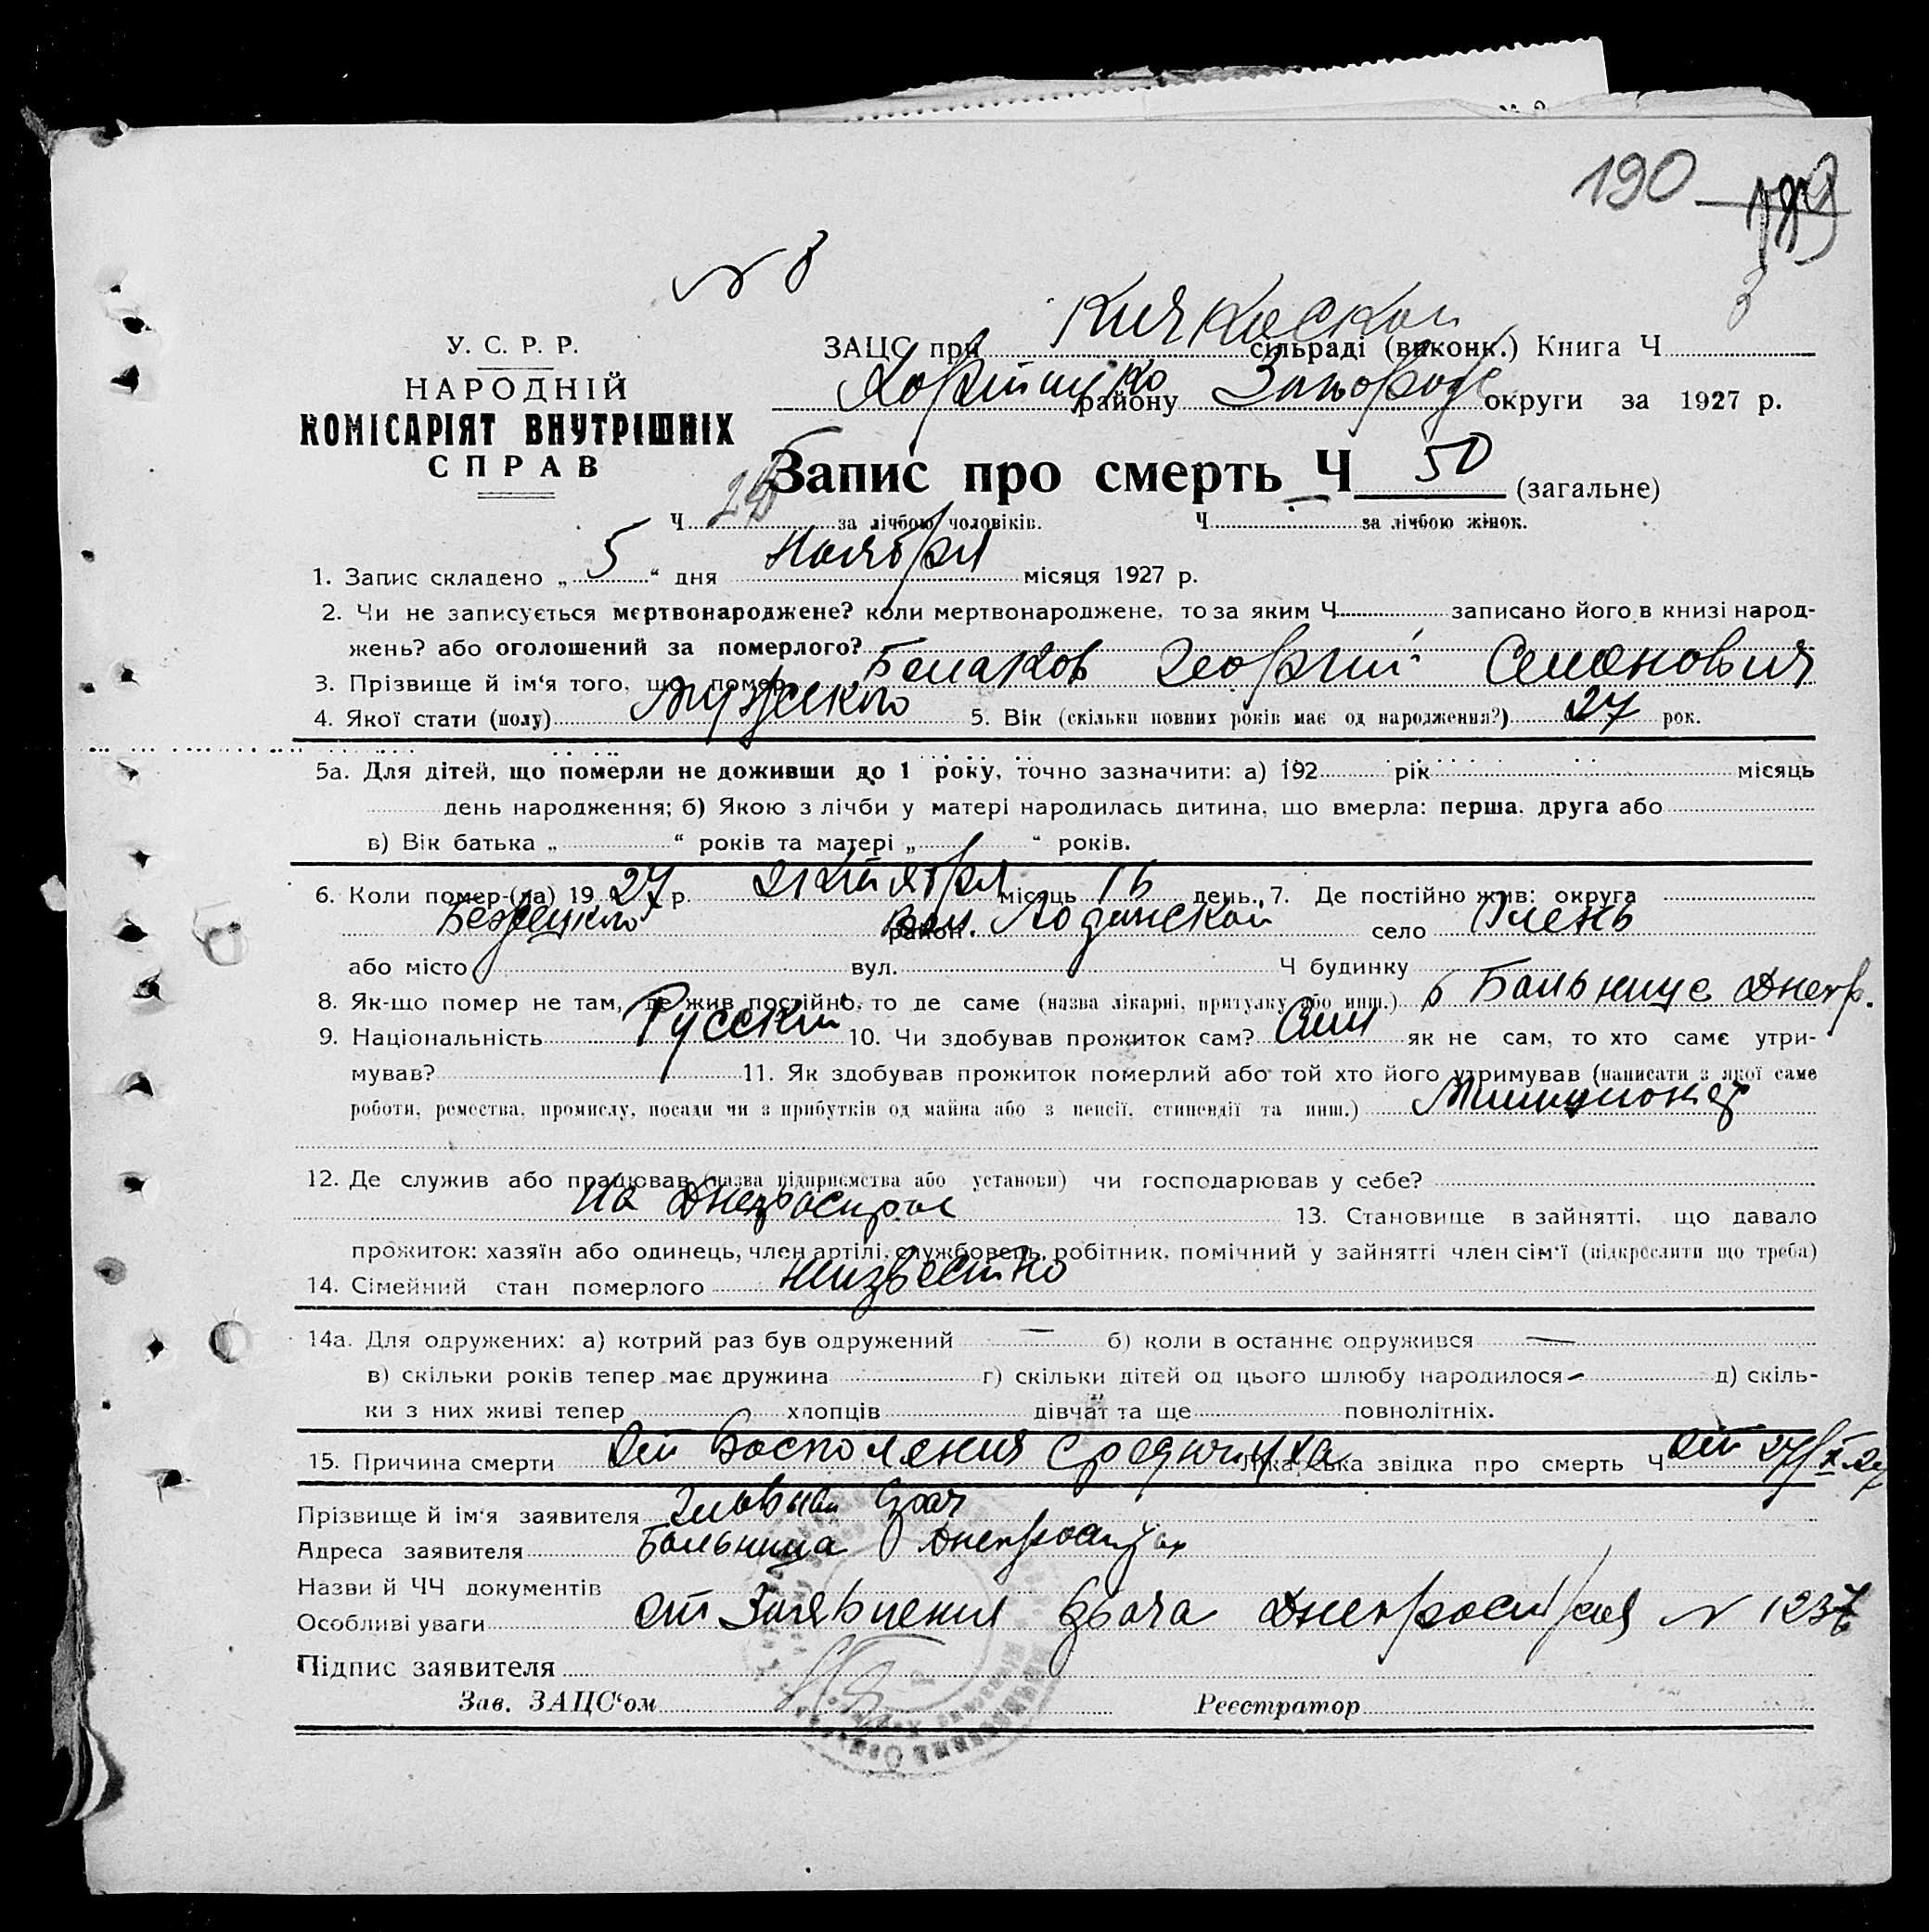 190
189
№ 8
У. С. Р. Р.
НАРОДНІЙ
КОМІСАРІЯТ ВНУТРІШНІХ
СПРАВ
ЗАЦС при Кичкаской сільраді (виконк.) Книга Ч
района Запорож округи за 1927 р.
Запис про смерть Ч 50 (загальне)
Ч за лічбою чоловіків. Ч за лічбою жінок.
1. Запис складено „ 5 “ дня Ноября місяця 1927 р.
2. Чи не записується мертвонароджене? коли мертвонароджене, то за яким Ч записано його в книзі народ-
жень? або оголошений за померлого?
3. Прізвище й ім‘я того, що помер Георгий Семенович
4. Якої стати (полу) мужского 5. Вік (скільки повних років має од народження?) 27 рок.
5а. Для дітей, що померли не доживши до 1 року, точно зазначити: а) 192 рік місяць
день народження; б) Якою з лічби у матері народилась дитина, що вмерла: перша, друга або
в) Вік батька „ “ років та матері „ “ років.
6. Коли помер-(ла) 19 27 р. Октября місяць 16 день. 7. Де постійно жив: округа
Бежецкого район вол. село
або місто вул. Ч будинку
8. Як-що помер не там, де жив постійно, то де саме (назва лікарні, притулку або инш.) в Больнице Днепр.
9. Національність Русский 10. Чи здобував прожиток сам? Сам як не сам, то хто саме утри-
мував? 11. Як здобував прожиток померлий або той хто його утримував (написати з якої саме
роботи, ремества, промислу, посади чи з прибутків од майна або з пенсії, стипендії та инш.) Милиционер
12. Де служив або працював (назва підприємства або установи) чи господарював у себе?
На Днепрострое 13. Становище в зайнятті, що давало
прожиток: хазяїн або одинець, член артілі, службовець, робітник, помічний у зайнятті член сім‘ї (підкреслити що треба)
14. Сімейний стан померлого неизвестно
14а. Для одружених: а) котрий раз був одружений — б) коли в останнє одружився —
в) скільки років тепер має дружина г) скільки дітей од цього шлюбу народилося - д) скіль-
ки з них живі тепер хлопців дівчат та ще повнолітніх.
15. Причина смерти От Восполения Лікарська звідка про смерть Ч от 27/X-27
Прізвище й ім‘я заявителя Главный врач
Адреса заявителя Больница Днепростроя
Назви й ЧЧ документів
Особливі уваги от Заявления Врача Днепростроя № 1237
Підпис заявителя
Зав. ЗАЦС‘ом Реєстратор